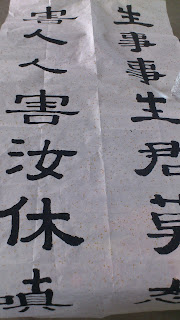 生事事生君莫怨
害人人害汝休嗔